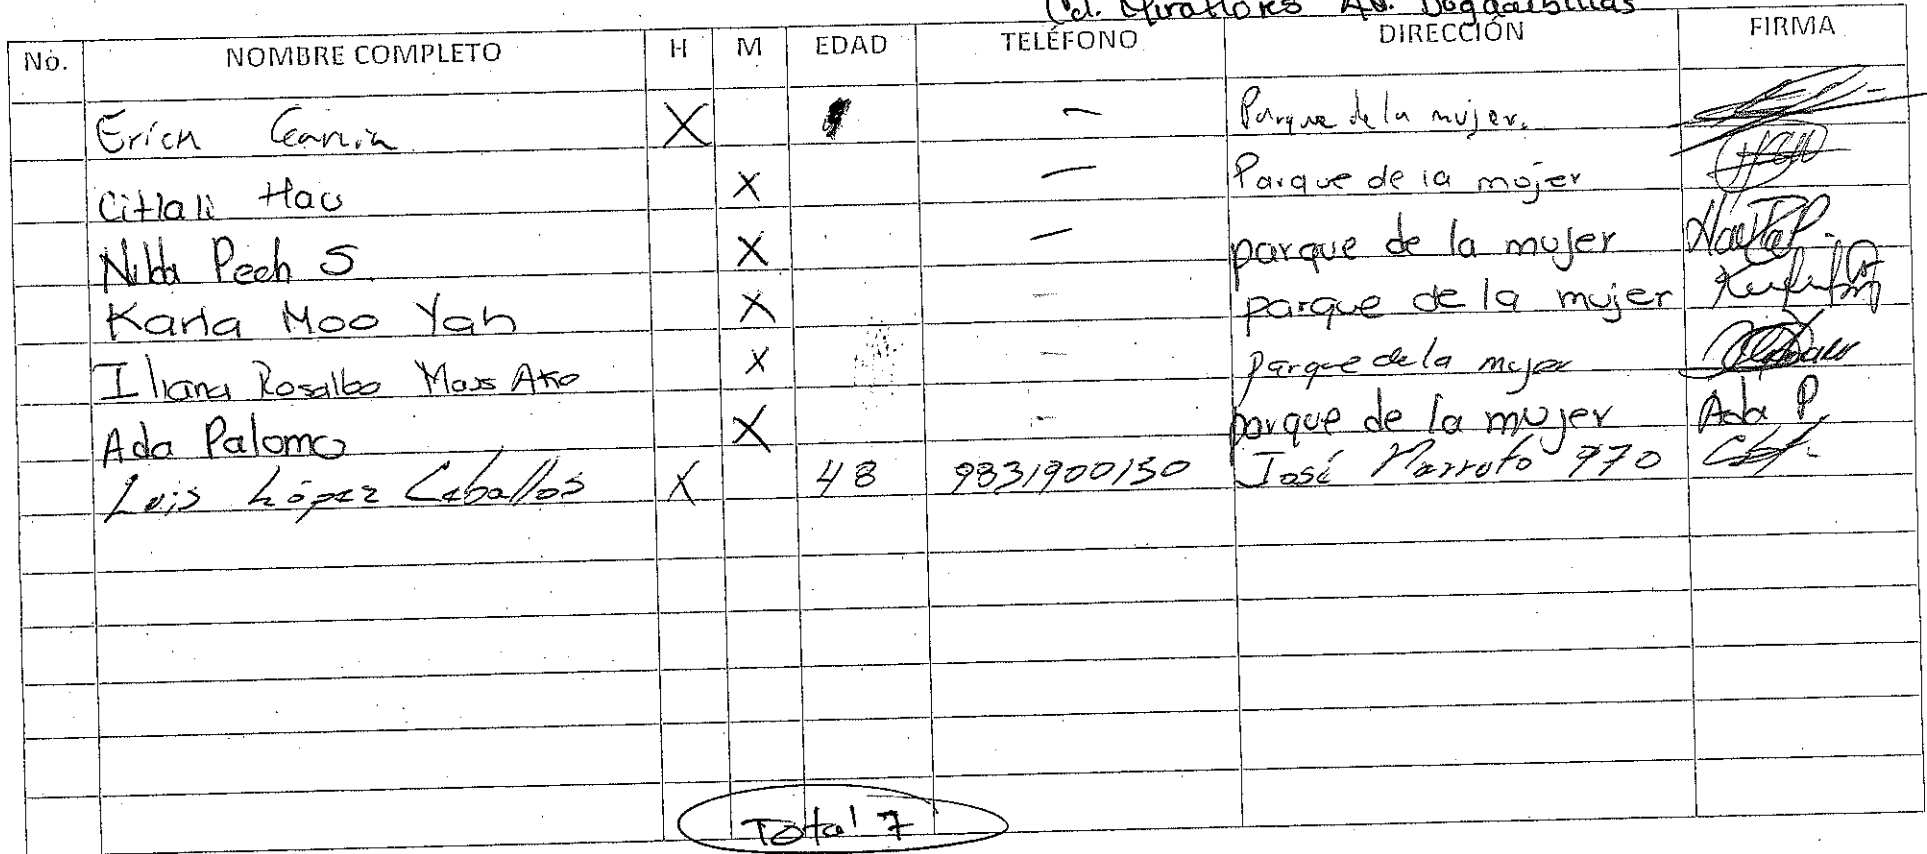 Col. Miraflores Av. Bugambilias
No. NOMBRE COMPLETO H M EDAD TELÉFONO DIRECCIÓN FIRMA
Erich X — Parque de la mujer.
Citlali Hau X — Parque de la mojer
Nilda Pech S X — parque de la mujer
Karla Moo Yah X — parque de la mujer
Iliana Rosalba X — parque de la mujer
Ada Palomo X - parque de la mujer Ada P.
Luis López Ceballos X 48 9831900150 José 970
Total 7